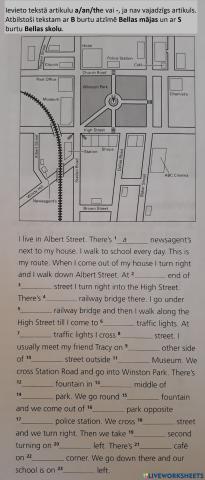 Ievieto tekstā artikulu a/an/the vai -, ja nav vajadzīgs artikuls.
Atbilstoši tekstam ar B burtu atzīmē Bellas mājas un ar S
burtu Bellas skolu.
Hotel
Church
Police Station
Café
Church Road
Post Office
Winston Park
Museum
Chemists
High Street
Station
Shops
Station Road
ABC Cinema
Newsagent's
Brown Street
I live in Albert Street. There's 1 a newsagent's
next to my house. I walk to school every day. This is
my route. When I come out of my house I turn right
and I walk down Albert Street. At 2 end of
3 street I turn right into the High Street.
There's 4 railway bridge there. I go under
5 railway bridge and then I walk along the
High Street till I come to 6 traffic lights. At
7 traffic lights I cross 8 street. I
usually meet my friend Tracy on 9 other side
of 10 street outside 11 Museum. We
cross Station Road and go into Winston Park. There's
12 fountain in 13 middle of
14 park. We go round 15 fountain
and we come out of 16 park opposite
17 police station. We cross 18 street
and we turn right. Then we take 19 second
turning on 20 left. There's 21 café
on 22 corner. We go down there and our
school is on 23 left.
LIVEWORKSHEETS